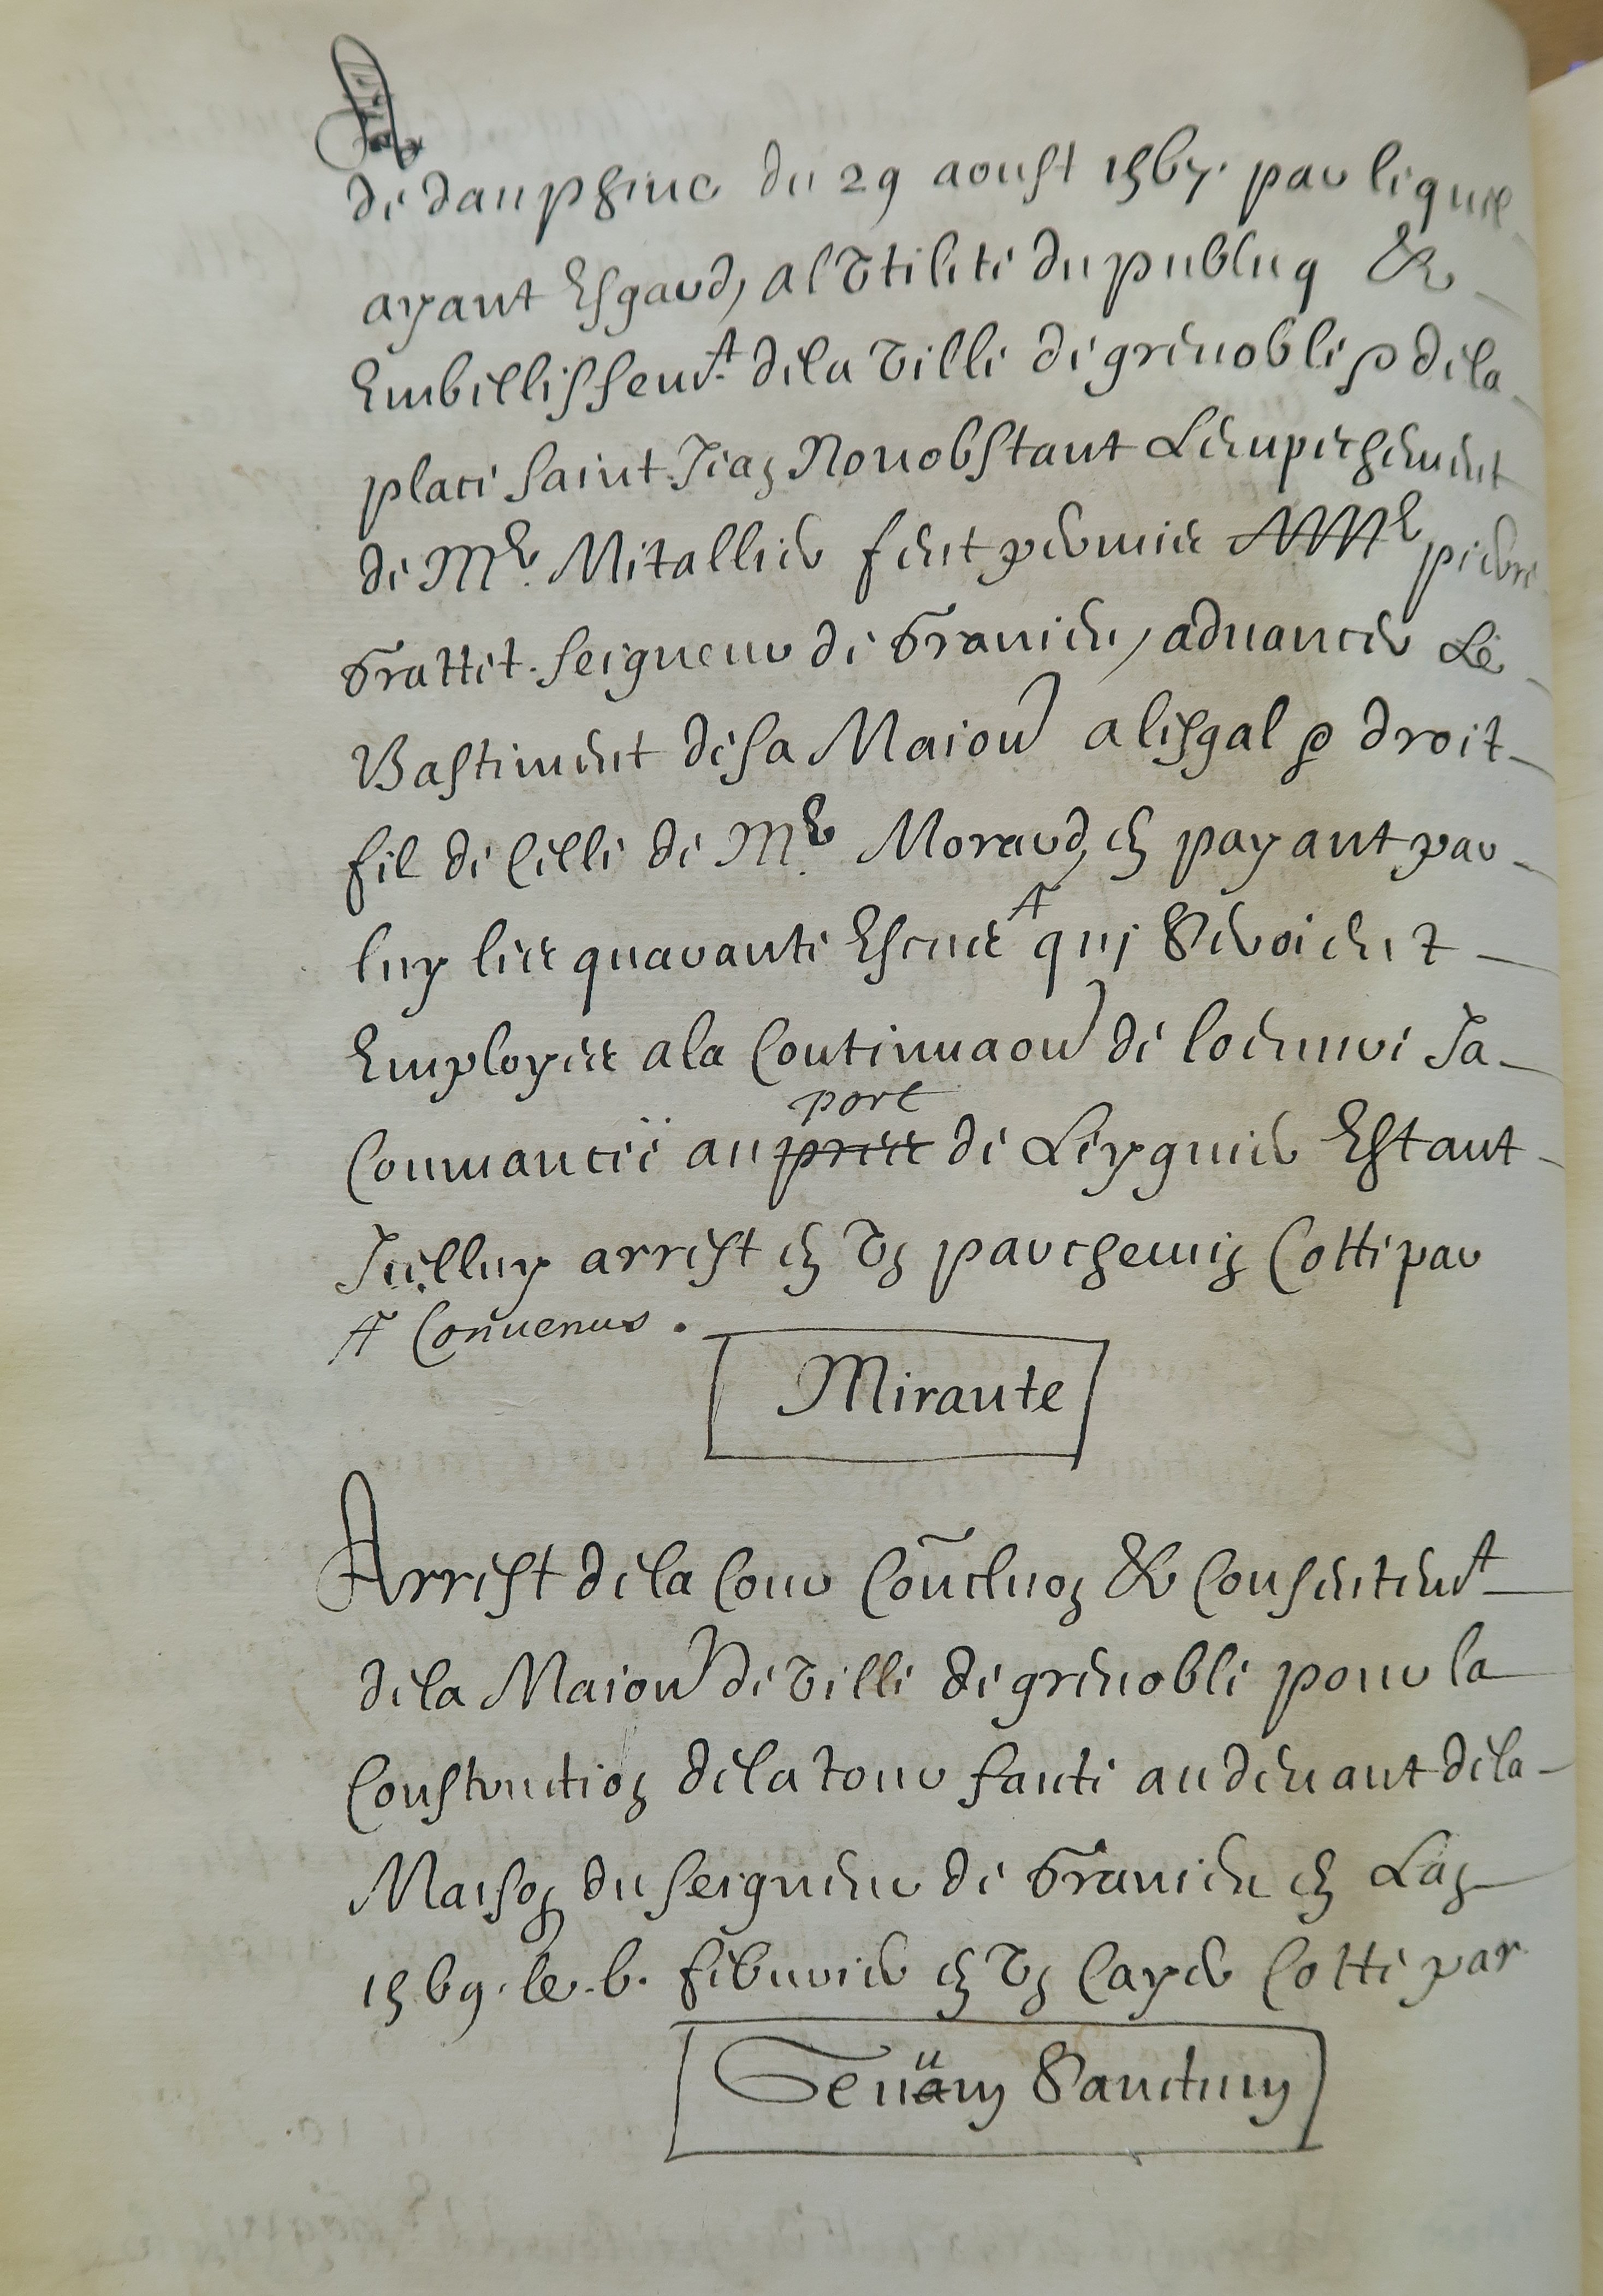 de dauphine du 29 aoust 1567. par lequel
ayant Esgard, al Vtilité du publicq &
Embellissemt. dela Ville de grenoble, & dela
place Saint Jean Nonobstant Lempechement
de Mr. Metallier feut permis A Mr pierre
Grattet. seigneur de Granieu, aduancer Le
Bastiment desa Maison a lesgal & droit
fil de Celle de Mr. Morard, en payant par
luy les quarante Escus A quj Seroient
Employes ala Continuaon de loeuure Ja
port
Commancée au pres de Leyguier Estant
Icelluy arrest en Vn parchemin Cotté par
A Conuenus.
Mirante
Arrest dela Cour Contenant & Consentemt
dela Maison de Ville de grenoble pour la
Construction dela tour faicte audeuant dela
Maison du seigneur de Granieu en Lan
1569. le. 6. feburier en Vn Cayer Cotté par
Tenüam Sanctum